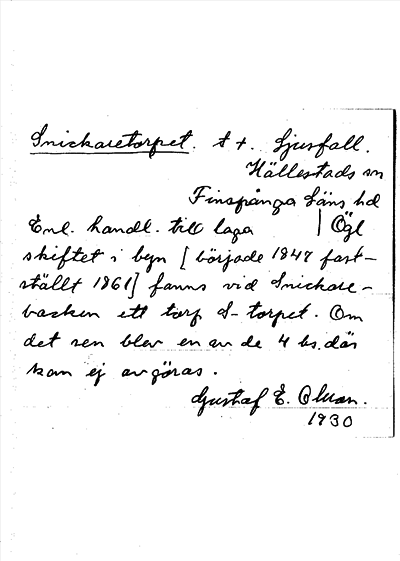 Snickaretorpet. t +. Ljusfall.
Hällestads sn
Finspånga Läns hd
Enl. handl. till laga | Ögl
skiftet i byn [började 1847 fast-
ställt 1861] fanns vid Snickare-
backen ett torp S- torpet. Om
det sen blev en av de 4 bs. där
kan ej avgöras.
Gustaf E. Olsson.
1930